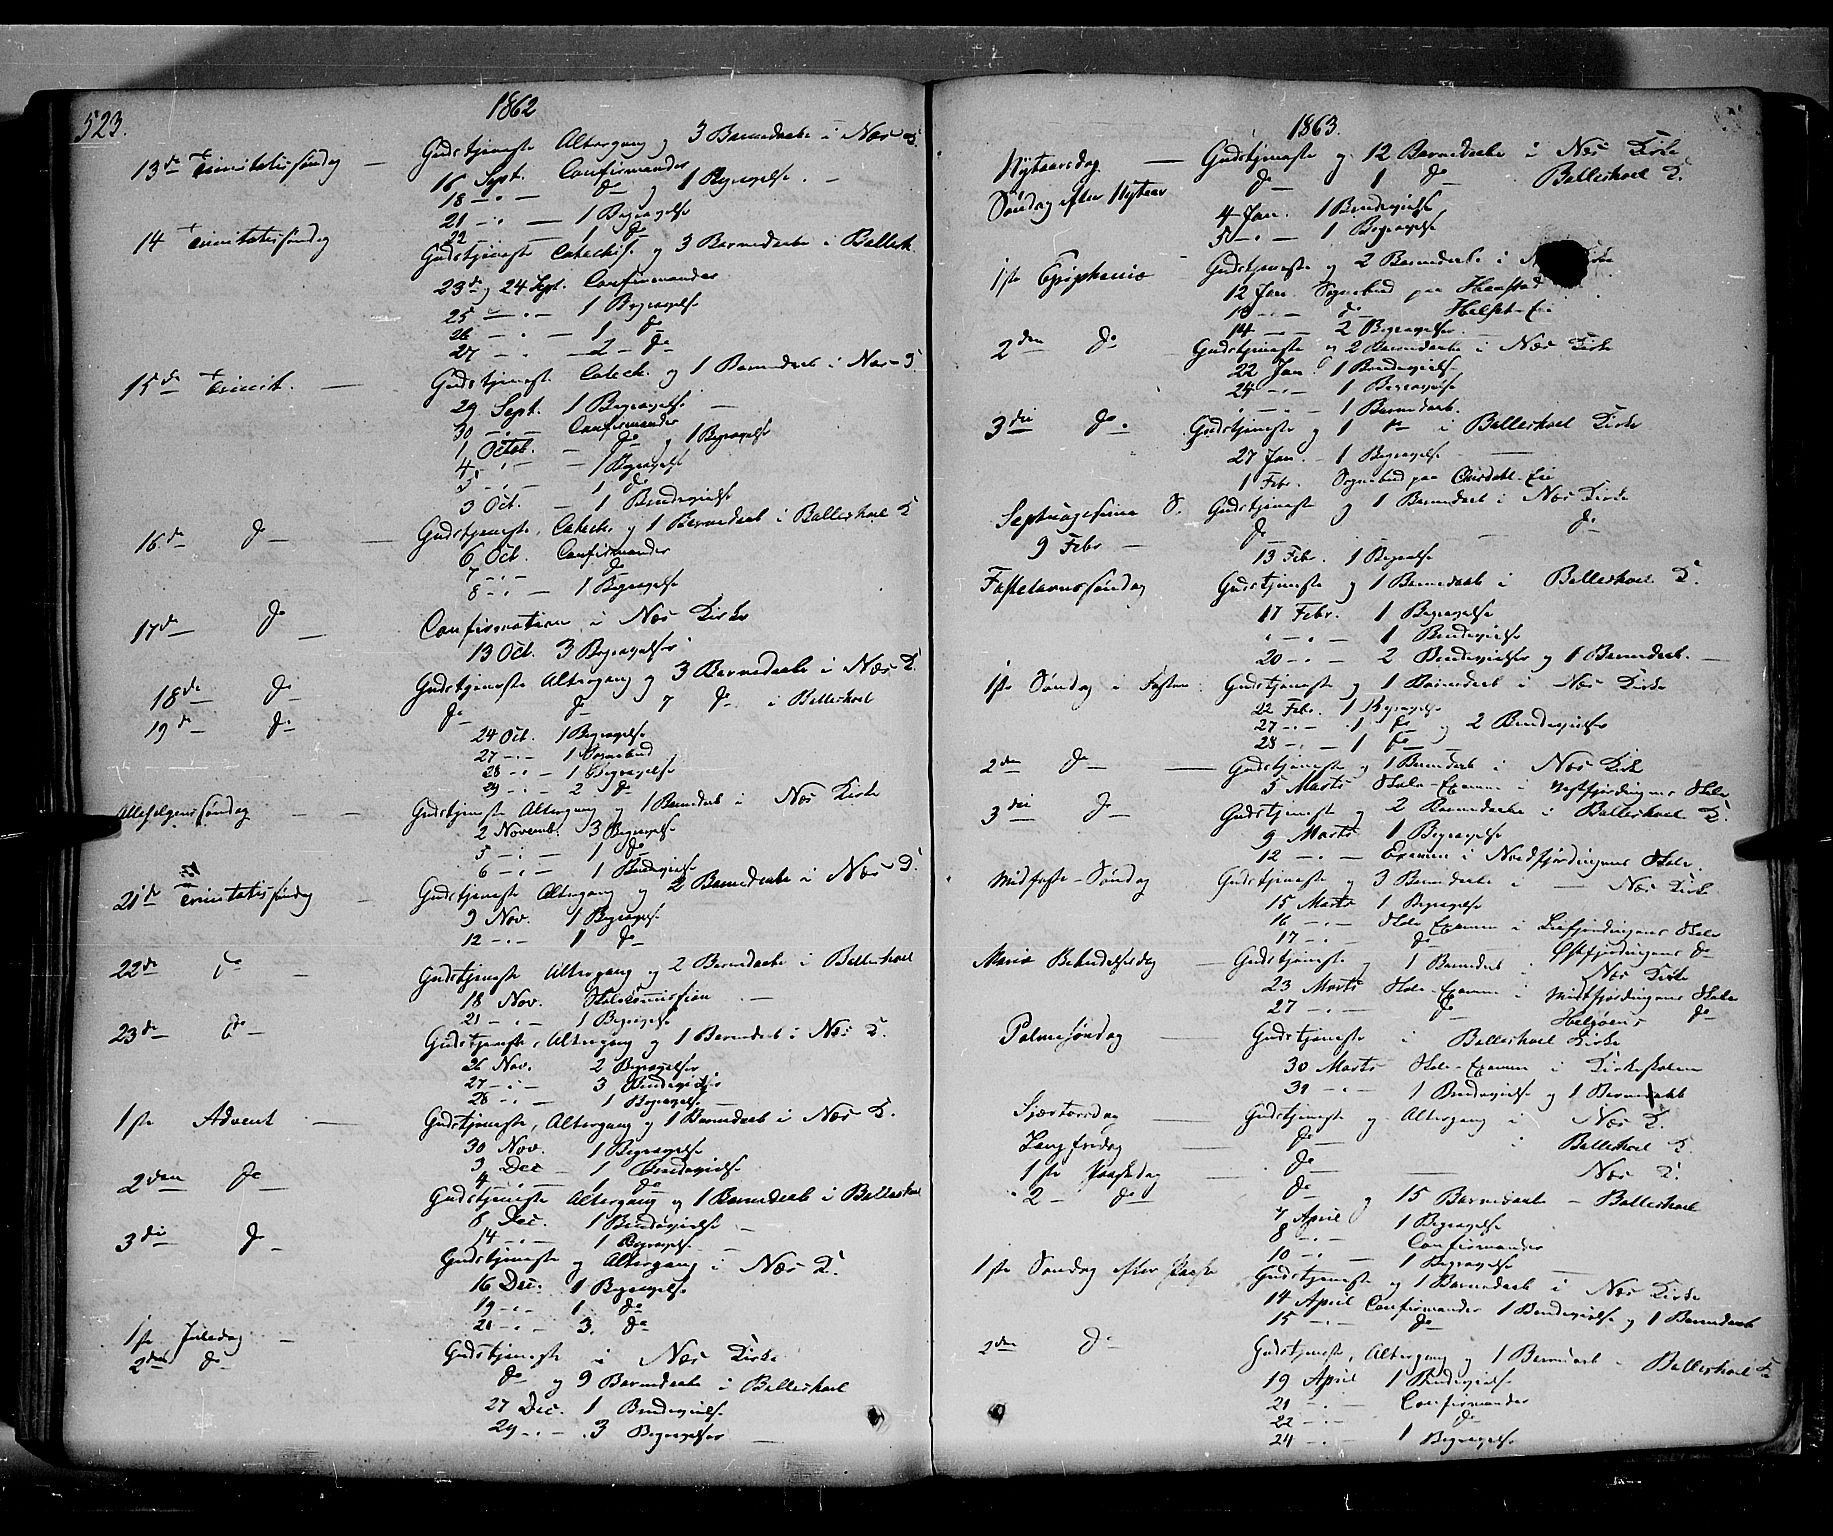 523.
1862
13de Trinitatissøndag — Gudstjeneste Altergang og 3 Barnedaabe i Næs K.
16 Sept. Confirmander
18 — " — do og 1 Begravelse. —
21 — " — 1 Begravelse
22 — 1 do
14 Trinitatissøndag Gudstjeneste Catechis. og 3 Barnedaabe i Ballish.
23de og 24 Sept. Confirmander
25 — " — 1 Begravelse
26 — " — 1 do
27 — " — 2 — do
15de Trinit. — Gudstjeneste Catech. og 1 Barnedaab i Næs K.
29 Sept. 1 Begravelse —
30 — " — Confirmander
1 Octob. — do og 1 Begravelse
4 — " — 1 Begravelse
5 — " — 1 do
3 Oct. — 1 Brudevielse
16de do — Gudstjeneste, Catech. og 1 Barnedaab i Ballishoel K
6 Oct. Confirmander
7 — " — do
8 — " — 1 Begravelse
17de do — Confirmation i Næs Kirke
13 Oct. 3 Begravelser
18de do Gudstjeneste Altergang og 3 Barnedaabe i Næs K.
19de do do do 7 do i Ballishoel
24 Oct. 1 Begravelse
27 — " — 1 Sognebud
28 — " — 1 Begravelse
29 — " — 2 do
Allehelgenssøndag — Gudstjeneste Altergang og 1 Barnedaab i Næs Kirke
2 Novemb. 3 Begravelse
5 — " — 1 do
6 — " — 1 Brudevielse
21de Trinitatissøndag — Gudstjeneste Altergang og 2 Barnedaabe i Næs K.
9 Nov. 1 Begravelse
12 — " — 1 do
22de do — Gudstjeneste Altergang og 2 Barnedaabe i Ballishoel
18 Nov. Skolecommission —
21 — " — 1 Begravelse
23de do — Gudstjeneste, Altergang og 1 Barnedaab i Næs K.
26 Nov. 2 Begravelser
27 — " — 3 Brudevielser
28 — " — 1 Begravelse —
1ste Advent — Gudstjeneste, Altergang og 1 Barnedaab i Næs K.
30 Nov. 1 Begravelse
3 Dec — 1 Brudevielse
4 — " — 1 do
2den do — Gudstjeneste Altergang og 1 Barnedaab i Ballishoel
8 Dec. 1 Brudevielse —
14 — " — 1 Begravelse —
3die do Gudstjeneste og Altergang i Næs K.
16 Dec. 1 Begravelse
19 — " — 1 do
20 — " — 3. do
1ste Juledag — Gudstjeneste i Næs Kirke
2den do do og 9 Barnedaabe i Ballishoel
27 Dec. 1 Brudevielse
29 — " — 3 Begravelser —
1863.
Nytaarsdag — Gudstjeneste og 12 Barnedaabe i Næs Kirke
Søndag efter Nytaar do 1 do Ballishoel K.
4 Jan. 1 Brudevielse
5 — " — 1 Begravelse
1ste Epiphanie Gudstjeneste og 2 Barnedaabe i Kirke
12 Jan. Sognebud paa Haarstad
13 — " — do Helset-Eie
14 — " — 2 Begravelser.
2den do Gudstjeneste og 2 Barnedaabe i Næs Kirke
22 Jan. 1 Brudevielse
24 — " — 1 Begravelse
" — " — 1 Barnedaab.
3die do. Gudstjeneste og 1 do i Ballishoel Kirke
27 Jan. — 1 Begravelse —
1 Febr. Sognebud paa Eie
Septuagesima S. Gudstjeneste og 1 Barnedaab i Næs Kirke
9 Febr — do — do
13 Febr. 1 Begravelse
Fastelavnssøndag Gudstjeneste og 1 Barnedaab i Ballishoel K.
17 Febr. 1 Begravelse
" — " — 1 Brudevielse
20 — " — 2 Brudevielser og 1 Barnedaab. —
1ste Søndag i Fasten Gudstjeneste og 1 Barnedaab i Næs Kirke
22 Febr. 1 Begravelse
27 — " — 1 do og 2 Brudevielser
28 — " — 1 do
2den do — Gudstjeneste og 1 Barnedaab i Næs Kirke
5 Marts Skole-Examen i Vestfjerdingens Skole
3die do Gudstjeneste og 2 Barnedaabe i Ballishoel K.
9 Marts 1 Begravelse
12 — " — Examen i Nordfjerdingens Skole.
Midfaste-Søndag Gudstjeneste og 3 Barnedaabe i — Næs Kirke
15 Marts 1 Begravelse
16 — " — Skole Examen i Liefjerdingens Skole
17 — " — do Østfjerdingens do
Mariæ Bebudelsesdag — Gudstjeneste og 1 Barnedaab i Næs Kirke
23 Marts Skole-Examen i Midtfjerdingens Skole
27 — " — do Helgøens do
Palmesøndag — Gudstjeneste i Ballishoel Kirke
30 Marts Skole-Examen i Kirkeskolen
31 — " — 1 Brudevielse og 1 Barnedaab
Skjærtorsdag — Gudstjeneste og Altergang i Næs K.
Langfredag do — i Ballishoel K.
1ste Paaskedag do — Næs K.
2 — do — do og 15 Barnedaabe — Ballishoel
7 April 1 Begravelse
8 — " — Confirmander
10 — " — 1 Begravelse
1ste Søndag efter Paaske Gudstjeneste og 1 Barnedaab i Næs Kirke
14 April Confirmander 1 Brudevielse og 1 Barnedaab
15 — " — do
2den do Gudstjeneste, Altergang og 1 Barnedaab — Ballishoel K
19 April 1 Brudevielse
21 — " — Confirmander
22 — " — do
24 — " — 1 Begravelse